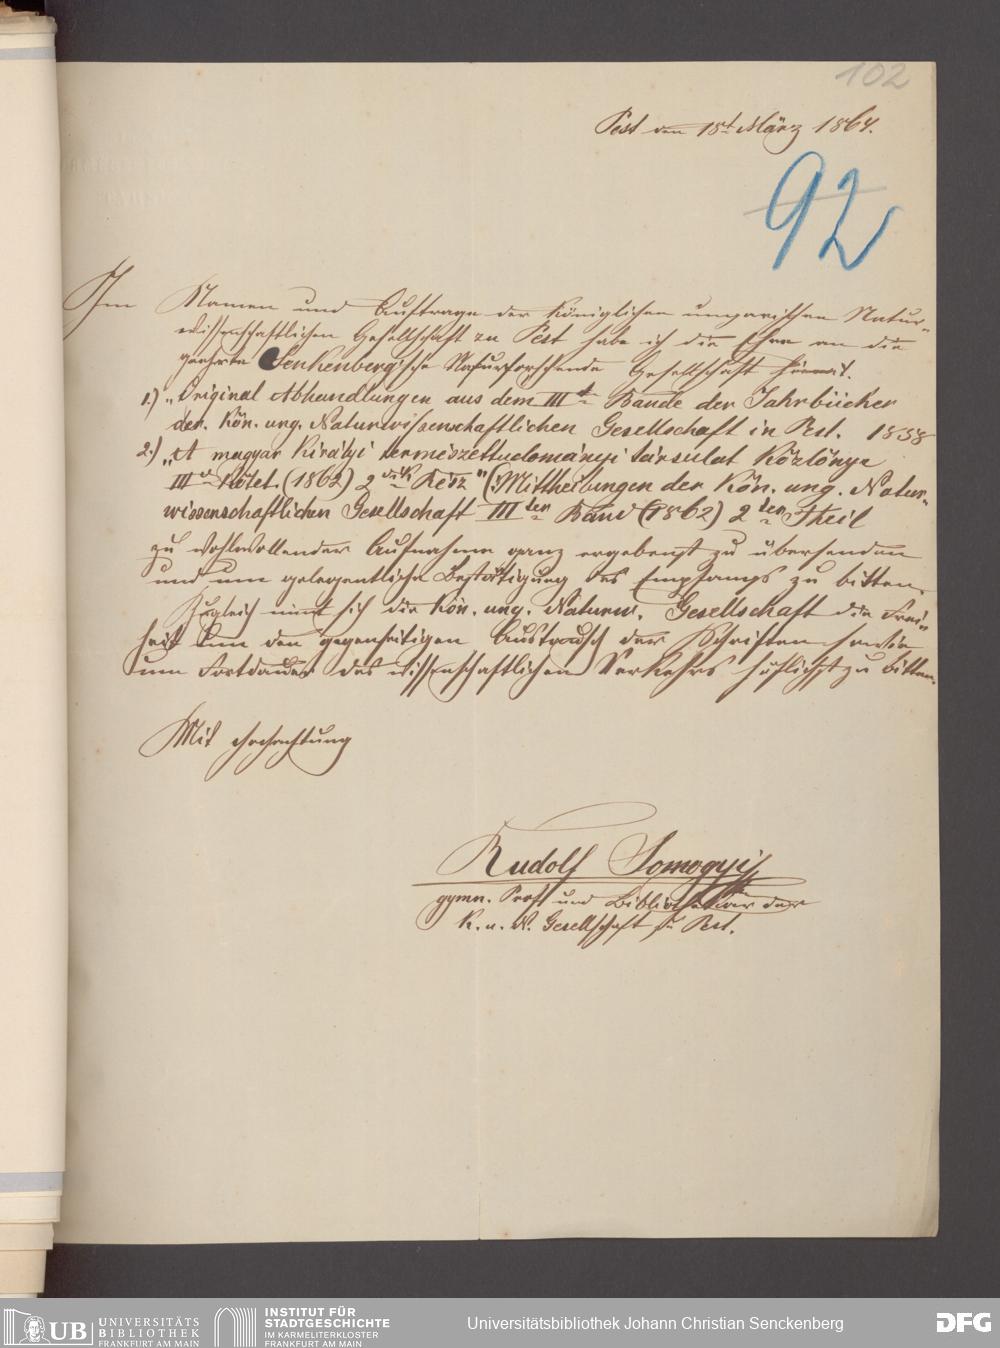 102
Pest den 18t März 1864.
92
Im Namen und Auftrage der Königlichen ungarischen Natur-
wissenschaftlichen Gesellschaft zu Pest habe ich die Ehre an die
geehrte Senkenberg'sche Naturforschende Gesellschaft hiemit.
1.) „Original Abhandlungen aus dem IIIt Bande der Jahrbücher
der. Kön. ung. Naturwissenschaftlichen Gesellschaft in Pest. 1858
2.) „A magyar Királyi természettudományi társulat Közlönye
III Kötet. (1862) 2 Rész" (Mittheilungen der Kön. ung. Natur-
wissenschaftlichen Gesellschaft IIIter Band (1862) 2ter Theil
zu wohlwollender Aufnahme ganz ergebenst zu übersenden
und um gelegentliche Bestätigung des Empfangs zu bitten.
Zugleich nimt sich die Kön. ung. Naturw. Gesellschaft die Frei-
heit um den gegenseitigen Austausch der Schriften sowie
um Fortdauer des wissenschaftlichen Verkehrs höflichst zu bitten.
Mit Hochachtung
Rudolf Somogyi
gymn. Prof und Bibliothekar der
K. u. N. Gesellschaft zu Pest.
UB UNIVERSITÄTS
BIBLIOTHEK
FRANKFURT AM MAIN
INSTITUT FÜR
STADTGESCHICHTE
IM KARMELITERKLOSTER
FRANKFURT AM MAIN
Universitätsbibliothek Johann Christian Senckenberg
DFG